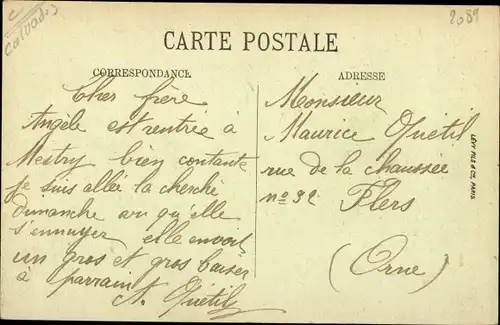 C
Calvados
2089
CARTE POSTALE
CORRESPONDANCE
Cher frère
Angèle est rentrée à
Mestry bien contante
je suis allée la cherché
dimanche
qu'elle
s'ennuyer elle
un gros et gros baiser
à parrain
A. Quétil
ADRESSE
Monsieur
Maurice Quétil
rue de la chaussée
n° 32
Flers
(Orne)
LÉVY FILS & Cie, PARIS.